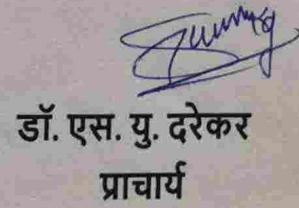 डॉ. एस. यु. दरेकर
प्राचार्य